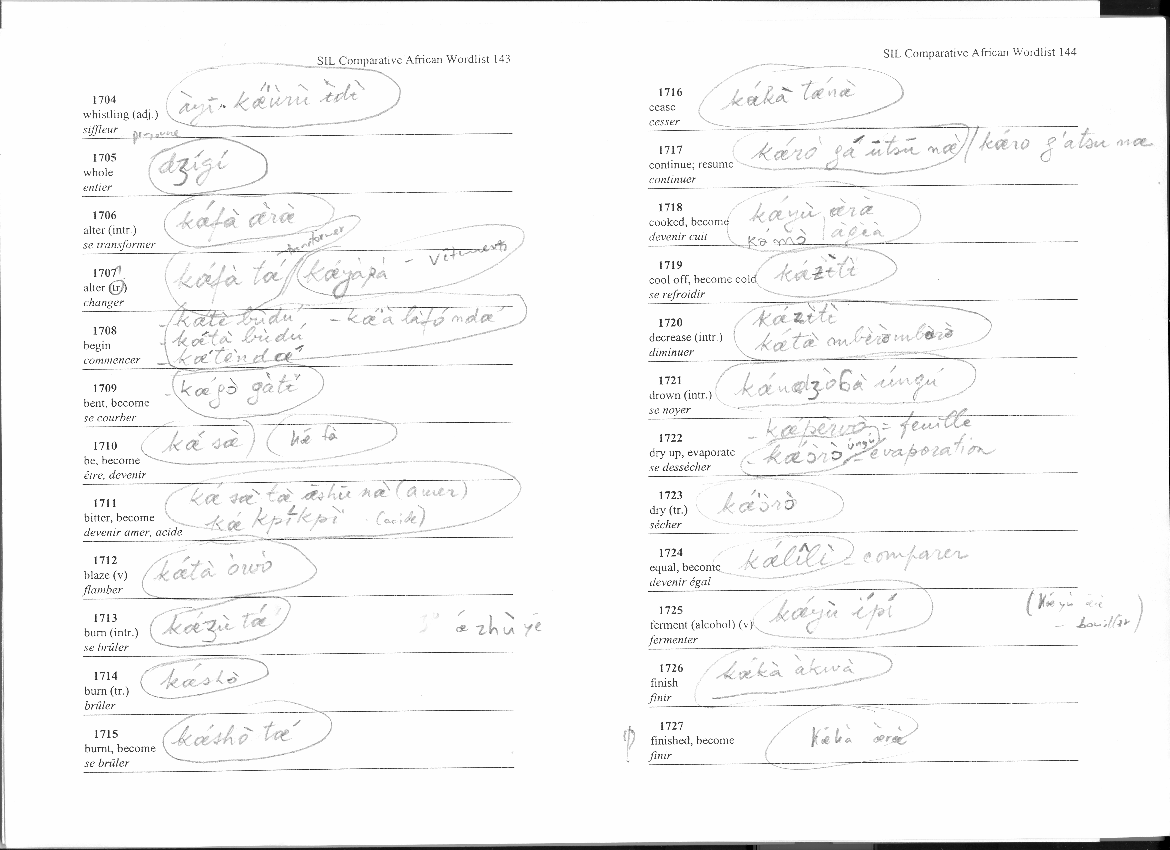 SIL Comparative African Wordlist 143
1704
whistling (adj.)
siffleur
personne
àyī- kǽùrù ɨ̀dɨ̀
1705
whole
entier
dʒígí
1706
alter (intr.)
se transformer
kǽfà æ̀rà
1707
alter (tr)
changer
kǽfà tǽ / kǽyàpá - vêtements
transformer
1708
begin
commencer
- kǽtè bùdú - kǽ'à làfó ndǽ
- kǽtà bùdú
- kǽténdǽ
1709
bent, become
se courber
- kǽpɔ̀ gàtɨ
1710
be, become
être, devenir
kǽ sæ̀ kǽ fà
1711
bitter, become
devenir amer, acide
kǽ sæ̀ tæ̀ ǣshū næ̀ (amer)
kǽ kpɨkpɨ̀ (acide)
1712
blaze (v)
flamber
kǽtà òwò
1713
burn (intr.)
se brûler
kǽzù tǽ
æ zhù yē
1714
burn (tr.)
brûler
kǽshò
1715
burnt, become
se brûler
kǽshò tǽ
SIL Comparative African Wordlist 144
1716
cease
cesser
kǽkà tǽnà
1717
continue; resume
continuer
kǽrò gǽ ūtsū næ̀ / kǽro g'atsu næ
1718
cooked, become
devenir cuit
kǽyù æ̀rà
kǽ mɔ̀
1719
cool off, become cold
se refroidir
kǽzɨ̀tɨ̀
1720
decrease (intr.)
diminuer
kǽzɨ̀tɨ̀
kǽtæ̀ mbèròmbèrò
1721
drown (intr.)
se noyer
kǽndʒòɓà úngú
1722
dry up, evaporate
se dessécher
- kǽpɛ̀rwɔ̀ = feuille
- kǽɔ̀rɔ̀ úngú = évaporation
1723
dry (tr.)
sécher
kǽɔ̀rɔ̀
1724
equal, become
devenir égal
kǽlɨ̂lɨ̀ - comparer
1725
ferment (alcohol) (v)
fermenter
kǽyù ípɨ́
- bouillir)
1726
finish
finir
kǽkà àkwà
1727
finished, become
finir
kǽkà æ̀ræ̀